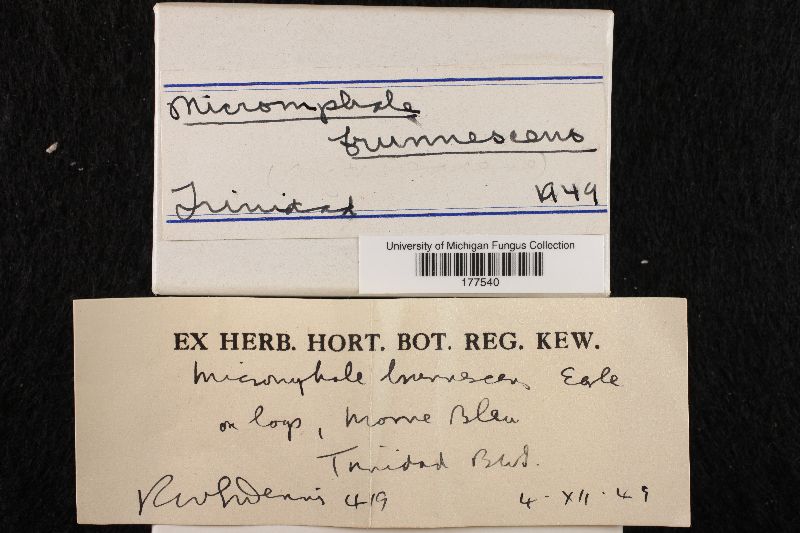 Micromphale
brunnescens
Trinidad 1949
University of Michigan Fungus Collection
177540
EX HERB. HORT. BOT. REG. KEW.
Micromphale brunnescens Earle
on logs, Morne Bleu
Trinidad B.W.I.
R W G Dennis 419 4-XII-49